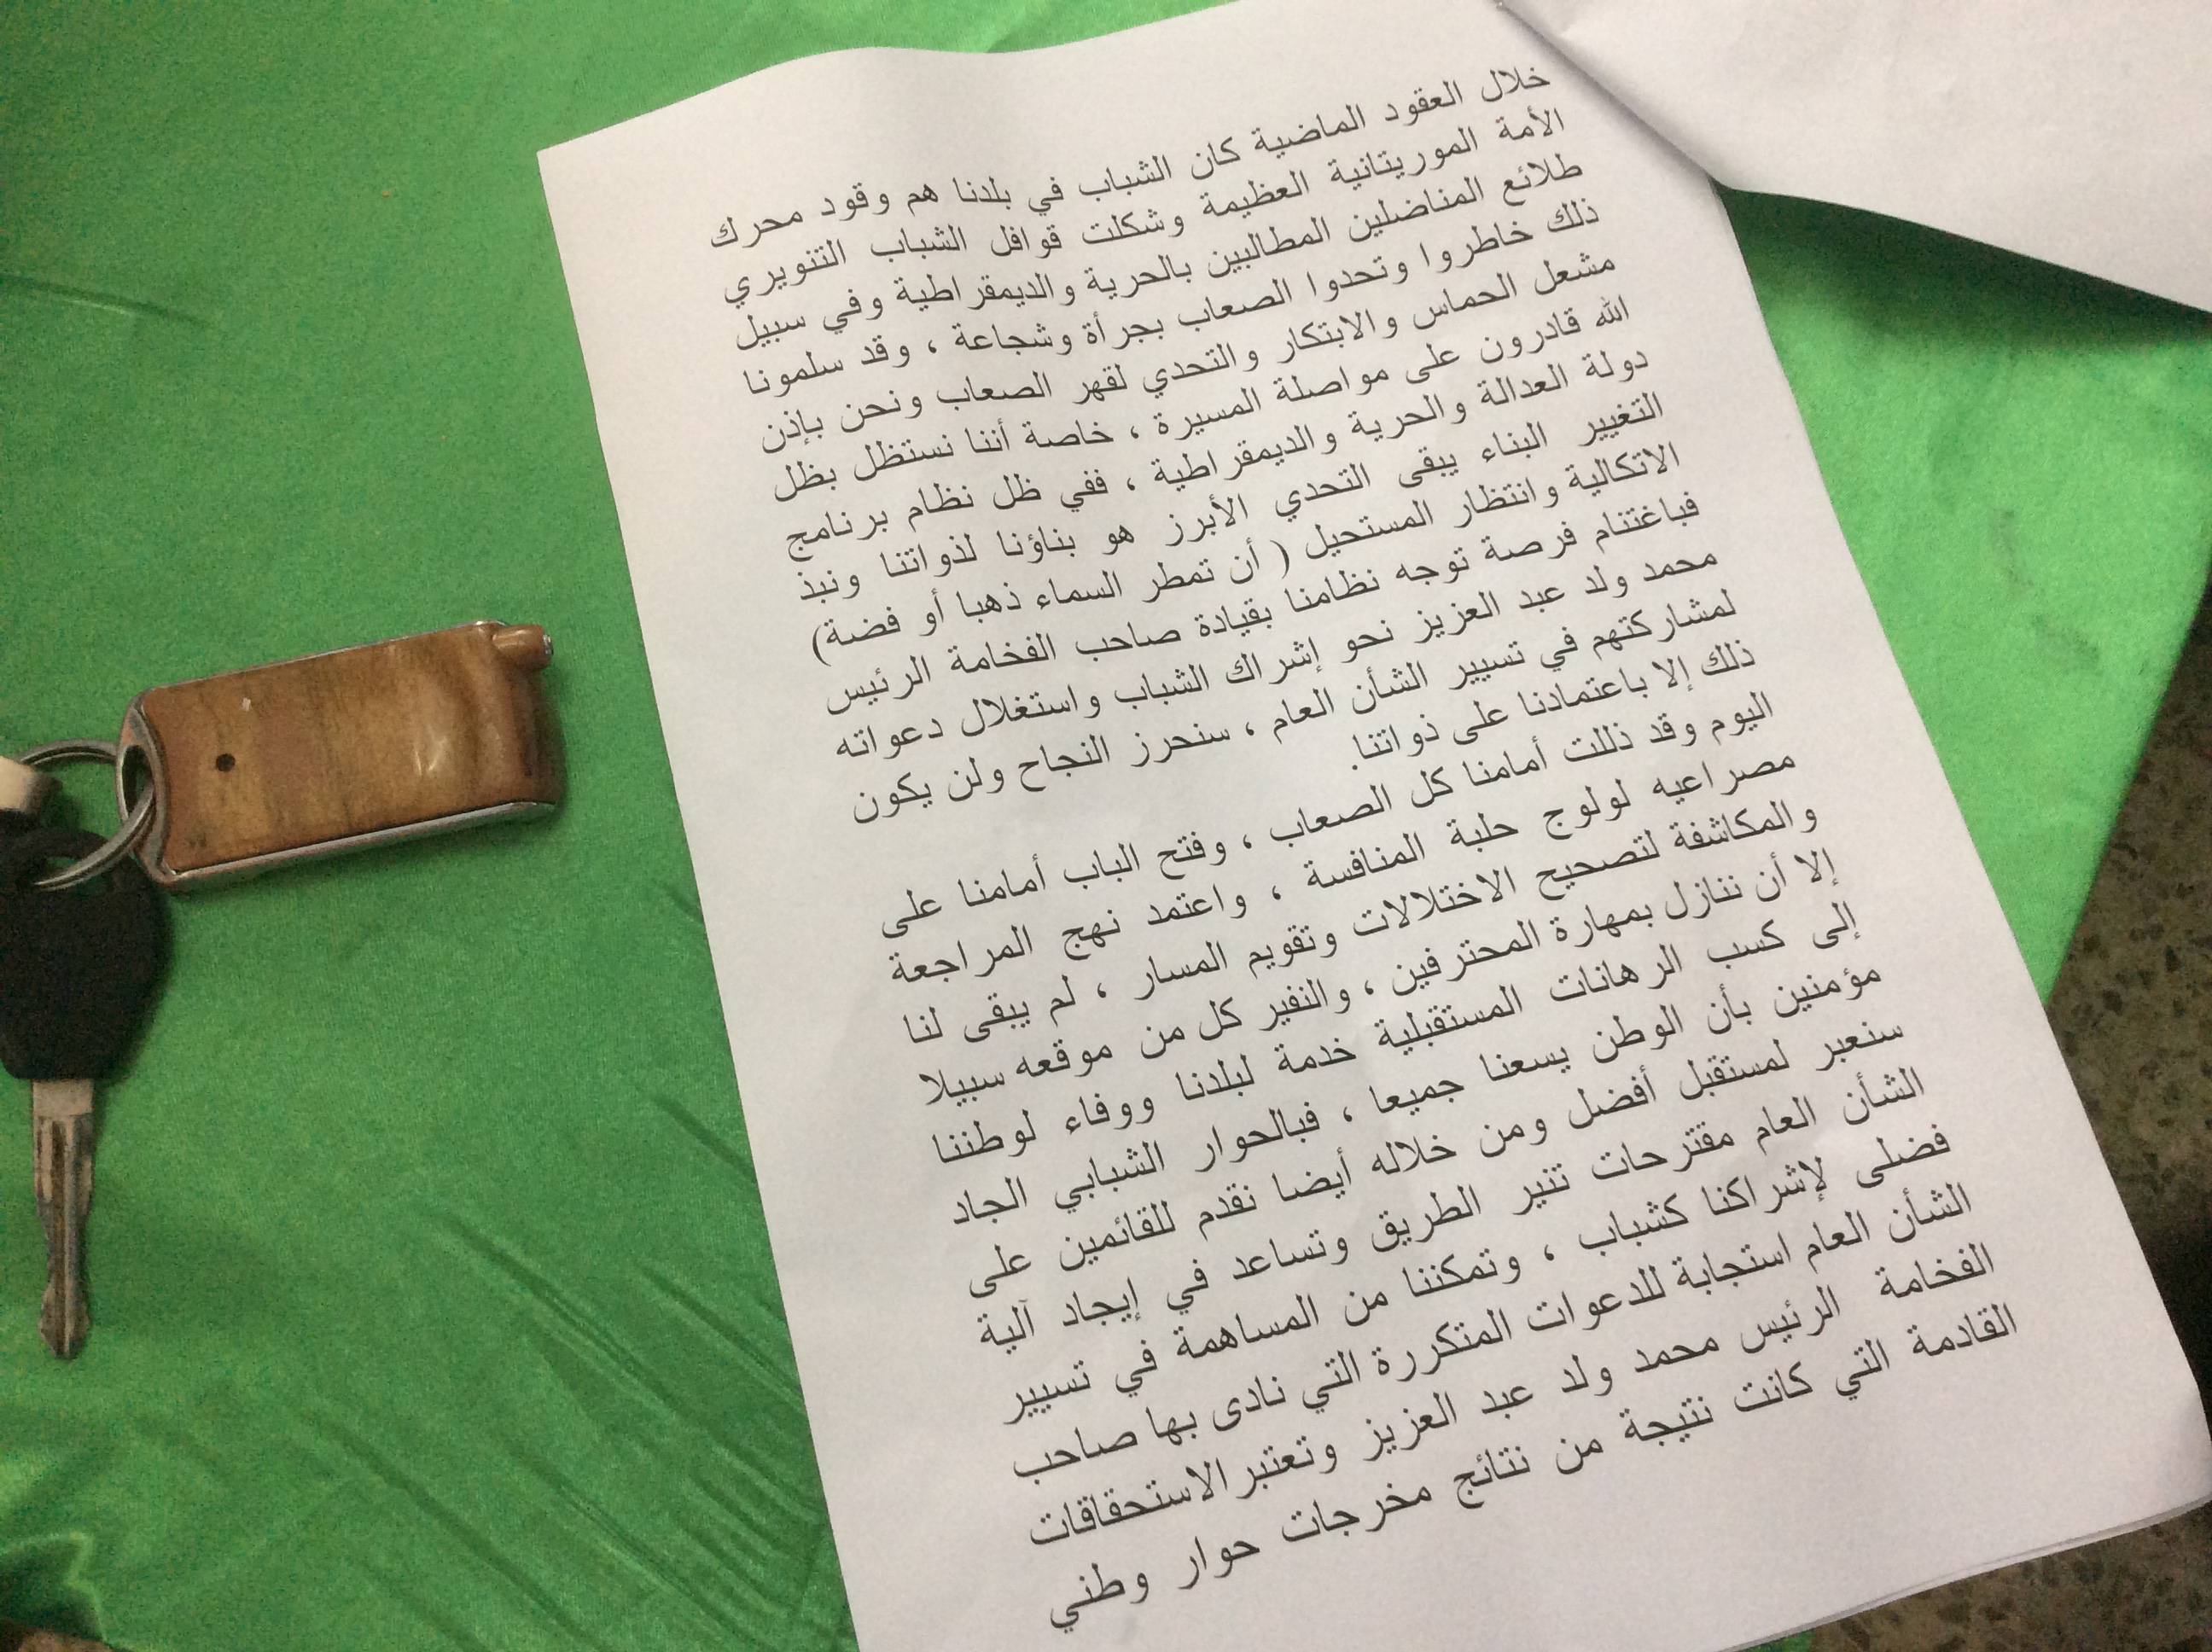 خلال العقود الماضية كان الشباب في بلدنا هم وقود محرك
الأمة الموريتانية العظيمة وشكلت قوافل الشباب التنويري
طلائع المناضلين المطالبين بالحرية والديمقراطية وفي سبيل
ذلك خاطروا وتحدوا الصعاب بجرأة وشجاعة ، وقد سلمونا
مشعل الحماس والابتكار والتحدي لقهر الصعاب ونحن بإذن
الله قادرون على مواصلة المسيرة ، خاصة أننا نستظل بظل
دولة العدالة والحرية والديمقراطية ، ففي ظل نظام برنامج
التغيير البناء يبقى التحدي الأبرز هو بناؤنا لذواتنا ونبذ
الاتكالية وانتظار المستحيل ( أن تمطر السماء ذهبا أو فضة)
فباغتنام فرصة توجه نظامنا بقيادة صاحب الفخامة الرئيس
محمد ولد عبد العزيز نحو إشراك الشباب واستغلال دعواته
لمشاركتهم في تسيير الشأن العام ، سنحرز النجاح ولن يكون
ذلك إلا باعتمادنا على ذواتنا.
اليوم وقد ذللت أمامنا كل الصعاب ، وفتح الباب أمامنا على
مصراعيه لولوج حلبة المنافسة ، واعتمد نهج المراجعة
والمكاشفة لتصحيح الاختلالات وتقويم المسار ، لم يبقى لنا
إلا أن ننازل بمهارة المحترفين ، والنفير كل من موقعه سبيلا
إلى كسب الرهانات المستقبلية خدمة لبلدنا ووفاء لوطننا
مؤمنين بأن الوطن يسعنا جميعا ، فبالحوار الشبابي الجاد
سنعبر لمستقبل أفضل ومن خلاله أيضا نقدم للقائمين على
الشأن العام مقترحات تنير الطريق وتساعد في إيجاد آلية
فضلى لإشراكنا كشباب ، وتمكننا من المساهمة في تسيير
الشأن العام استجابة للدعوات المتكررة التي نادى بها صاحب
الفخامة الرئيس محمد ولد عبد العزيز وتعتبر الاستحقاقات
القادمة التي كانت نتيجة من نتائج مخرجات حوار وطني